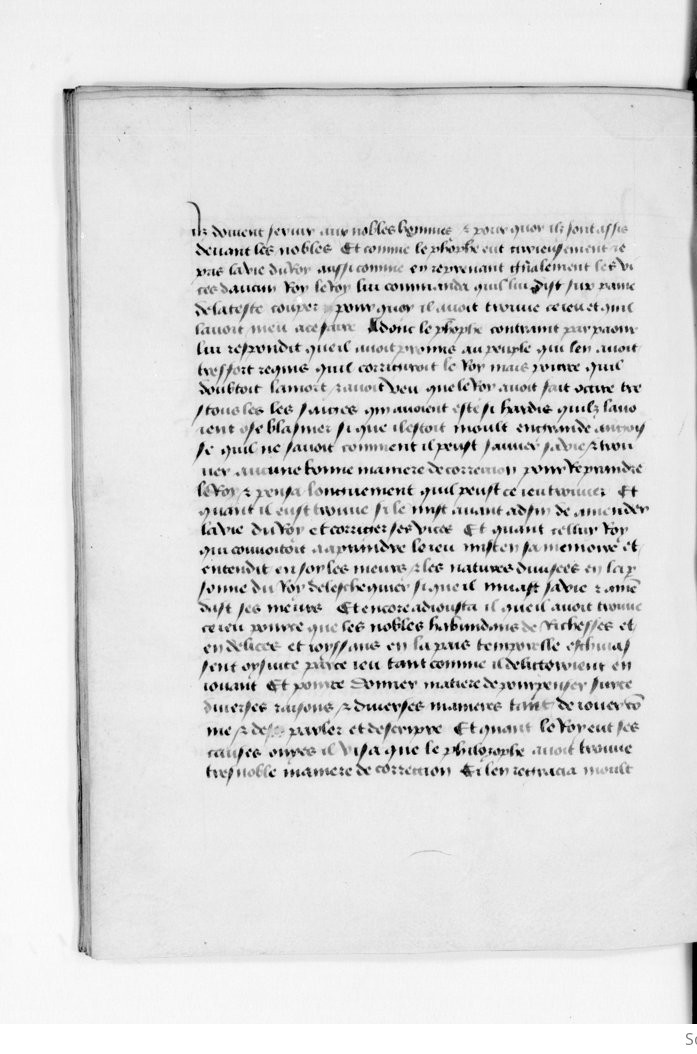 ilz doivent servir aux nobles hommes & pour quoy ilz sont assis
devant les nobles Et comme le phophe eut curieusement re
pris la vie du Roy aussi comme en reprenant gñalement les vi
ces daucun Roy le Roy lui commanda quil lui dist sur paine
de la teste couper pour quoy il avoit trouve ce ieu et quil
lavoit meu a ce faire Adonc le phophe contraint par paour
lui respondit que il avoit promis au peuple qui len avoit
tres fort requis quil corrigeroit le Roy mais pource quil
doubtoit la mort & avoit veu que le Roy avoit fait occire tre
stous les les saiges qui avoient este si hardis quilz lavo
ient ose blasmer si que il estoit moult en grande angois
se quil ne savoit comment il peust sauver sa vie & trou
ver aucune bonne maniere de correction pour Reprandre
le Roy & pensa longuement quil peust ce ieu trouver Et
quant il eust trouve si le mist avant adfin de amender
la vie du Roy et corrigier ses vices Et quant cellui Roy
qui couvoitoit a aprandre le ieu mist en sa memoire et
entendit en soy les meurs & les natures divisees en la p
sonne du Roy de leschequier si que il muast sa vie & amē
dist ses meurs Et encore adiousta il que il avoit trouve
ce ieu pource que les nobles habundans de Richesses et
en delices et ioyssans en la pais temporelle eschivas
sent oysivite par ce ieu tant comme il delicteroient en
iouant Et pource donner matiere de pourpenser sur ce
diverses raisons & diverses manieres tant de iouer cō
me & de parler et descripre Et quant le Roy eut ses
causes ouyes il visa que le philosophe avoit trouve
tres noble maniere de correction Et len regracia moult